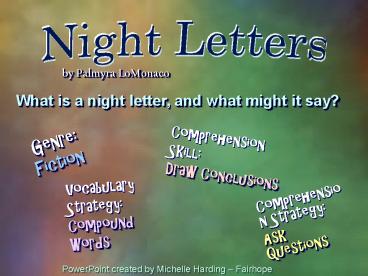 Night Letters
by Palmyra LoMonaco
What is a night letter, and what might it say?
Genre:
Fiction
Comprehension
Skill:
Draw Conclusions
Vocabulary
Strategy:
Compound
Words
Comprehensio
n Strategy:
Ask
Questions
PowerPoint created by Michelle Harding – Fairhope